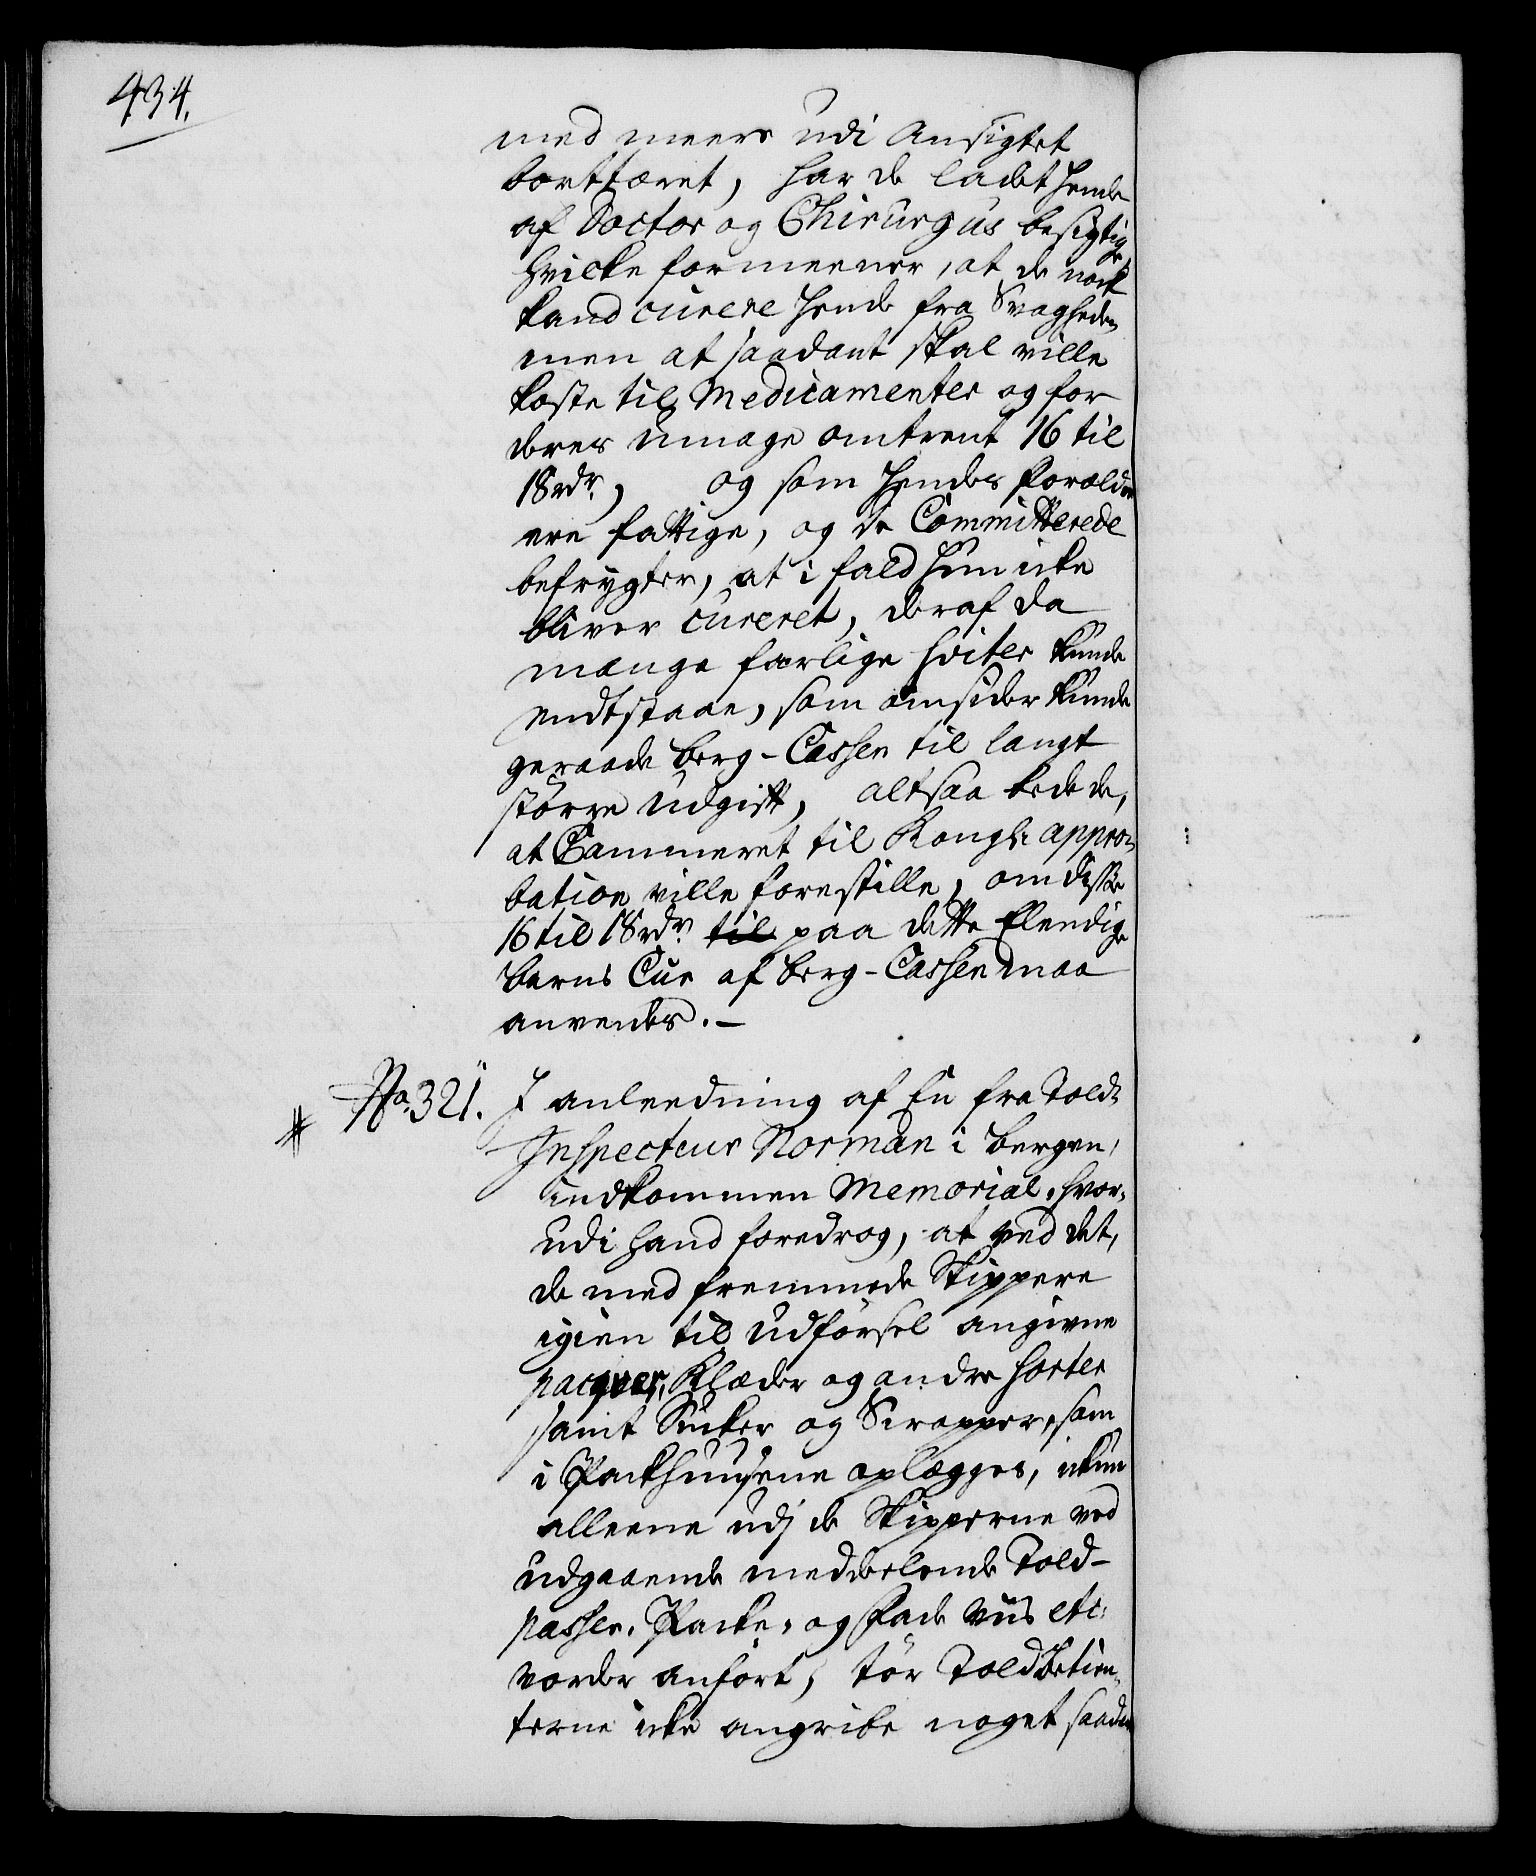 434.
med meere udi Ansigtet
borttæret, har de ladet hende
af Doctor og Chirurgus besigtige
hvilke formeener, at de nock
kand curere hende fra Svagheden
men at saadant skal ville
koste til Medicamenter og for
deres Umage omtrent 16 til
18 rdr., og som hendes Forældre
ere fattige, og de Committerede
befrygter, at i fald hun icke
bliver cureret, deraf da
mange farlige Suiter kunde
endtstaae, som omsider kunde
geraade Berg-Cassen til langt
større Udgift, altsaa bede de,
at Cammeret til Kongl. appro-
bation ville forestille, om disse
16 til 18 rdr. til paa dette Elendige
barns Cur af Berg-Cassen maa
anvendes. -
No. 321. I anleedning af En fra Told-
Inspecteur Norman i Bergen,
indkommen Memorial, hvor-
udi hand foredrog, at ved det,
de med fremmede Skippere
igien til Udførsel angivne
pacqver, Klæder og andre Sorter
samt Sucker og Siropper, som
i Packhuusene oplægges, ickun
alleene udj de Skipperne ved
udgaaende meddeelende Told-
passer, Packe- og Fade viis etc:
vorder anført, tør Toldbetien-
terne icke angribe noget saadan